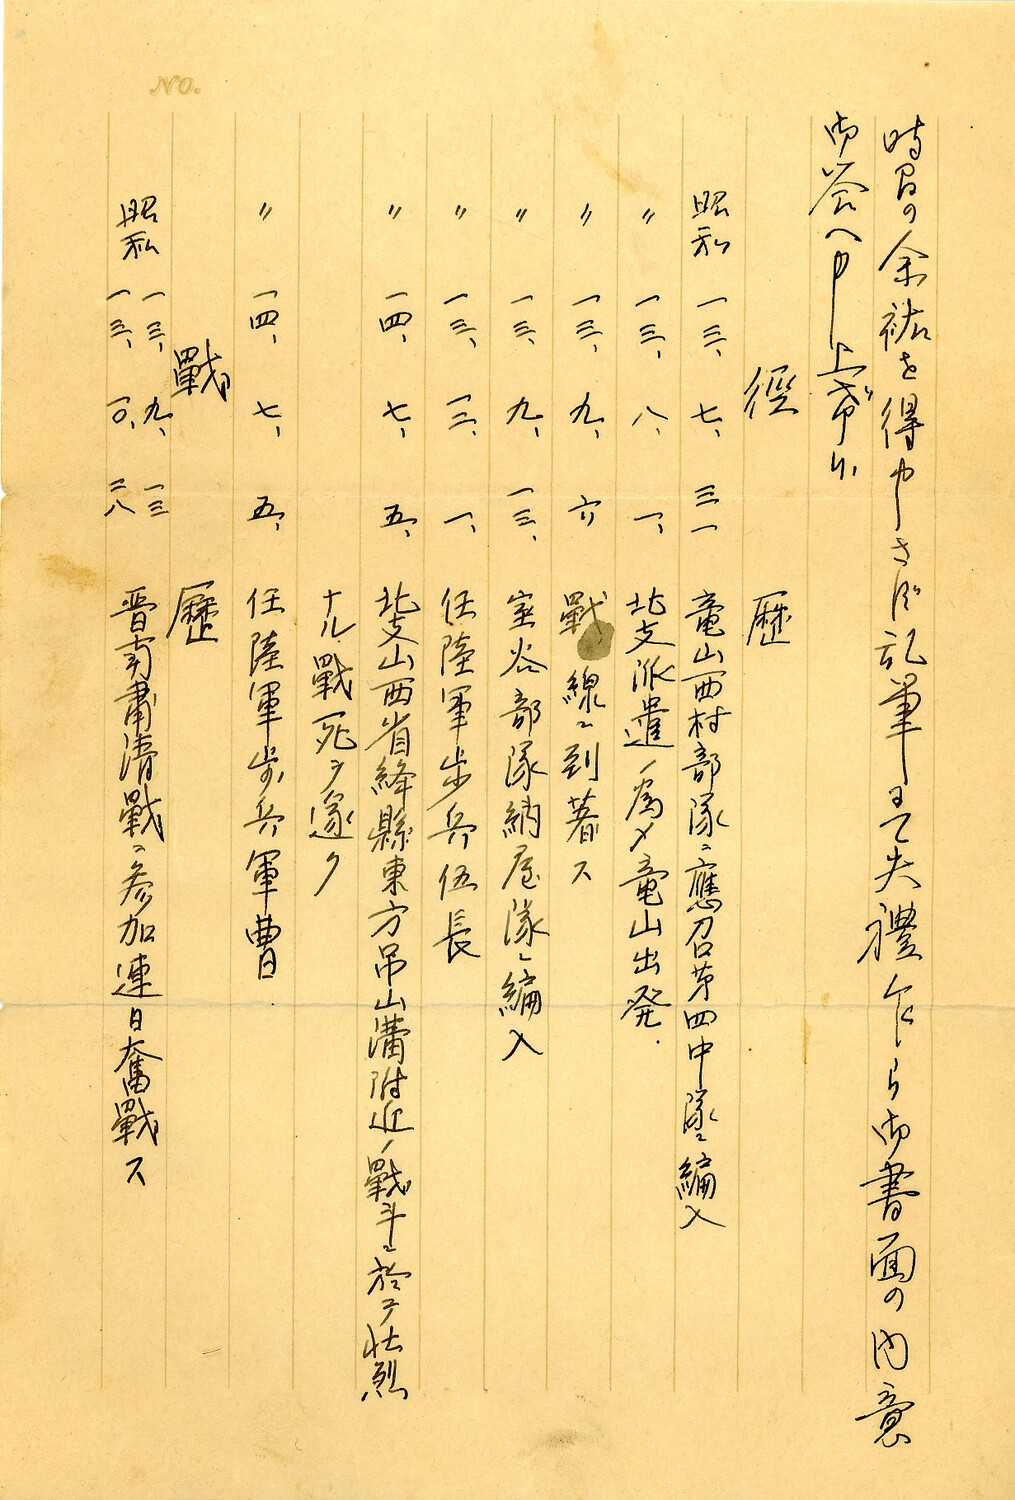 NO.
時間の余裕を得申さず乱筆にて失禮乍ら御書面の内意
御答へ申し上げます
径 歴
昭和 一三、七、三一 竜山西村部隊ニ應召第四中隊ニ編入
〃 一三、八、一、 北支派遣ノ為メ竜山出発.
〃 一三、九、六 戰線ニ到着ス
〃 一三、九、一三、 室谷部隊納屋隊ニ編入
〃 一三、一二、一、 任陸軍歩兵伍長
〃 一四、七、五、 北支山西省絳縣東方吊山溝附近ノ戰斗ニ於テ壮烈
ナル戰死ヲ遂ク
〃 一四、七、五、 任陸軍歩兵軍曹
戰 歴
昭和 一三、九、一三
一三、一〇、二八 晋南肅清戰ニ参加連日奮戰ス